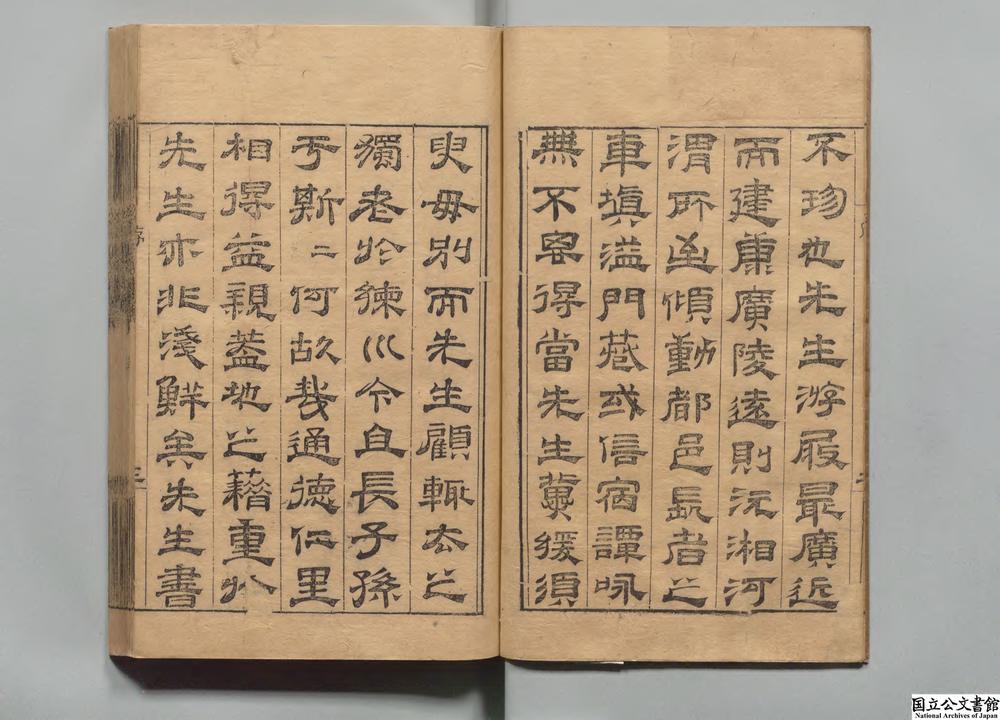 不珍也先生游屐最廣近
而建康廣陵遠則沅湘河
渭所至傾動都邑長者之
車塡溢門巷或信宿譚咏
無不得當先生冀緩須
臾毋別而先生顧輒去之
獨老於練川今且長子孫
于斯二何故哉通德仁里
相得益親蓋地之藉重於
先生亦非淺鮮矣先生書
国立公文書館
National Archives of Japan